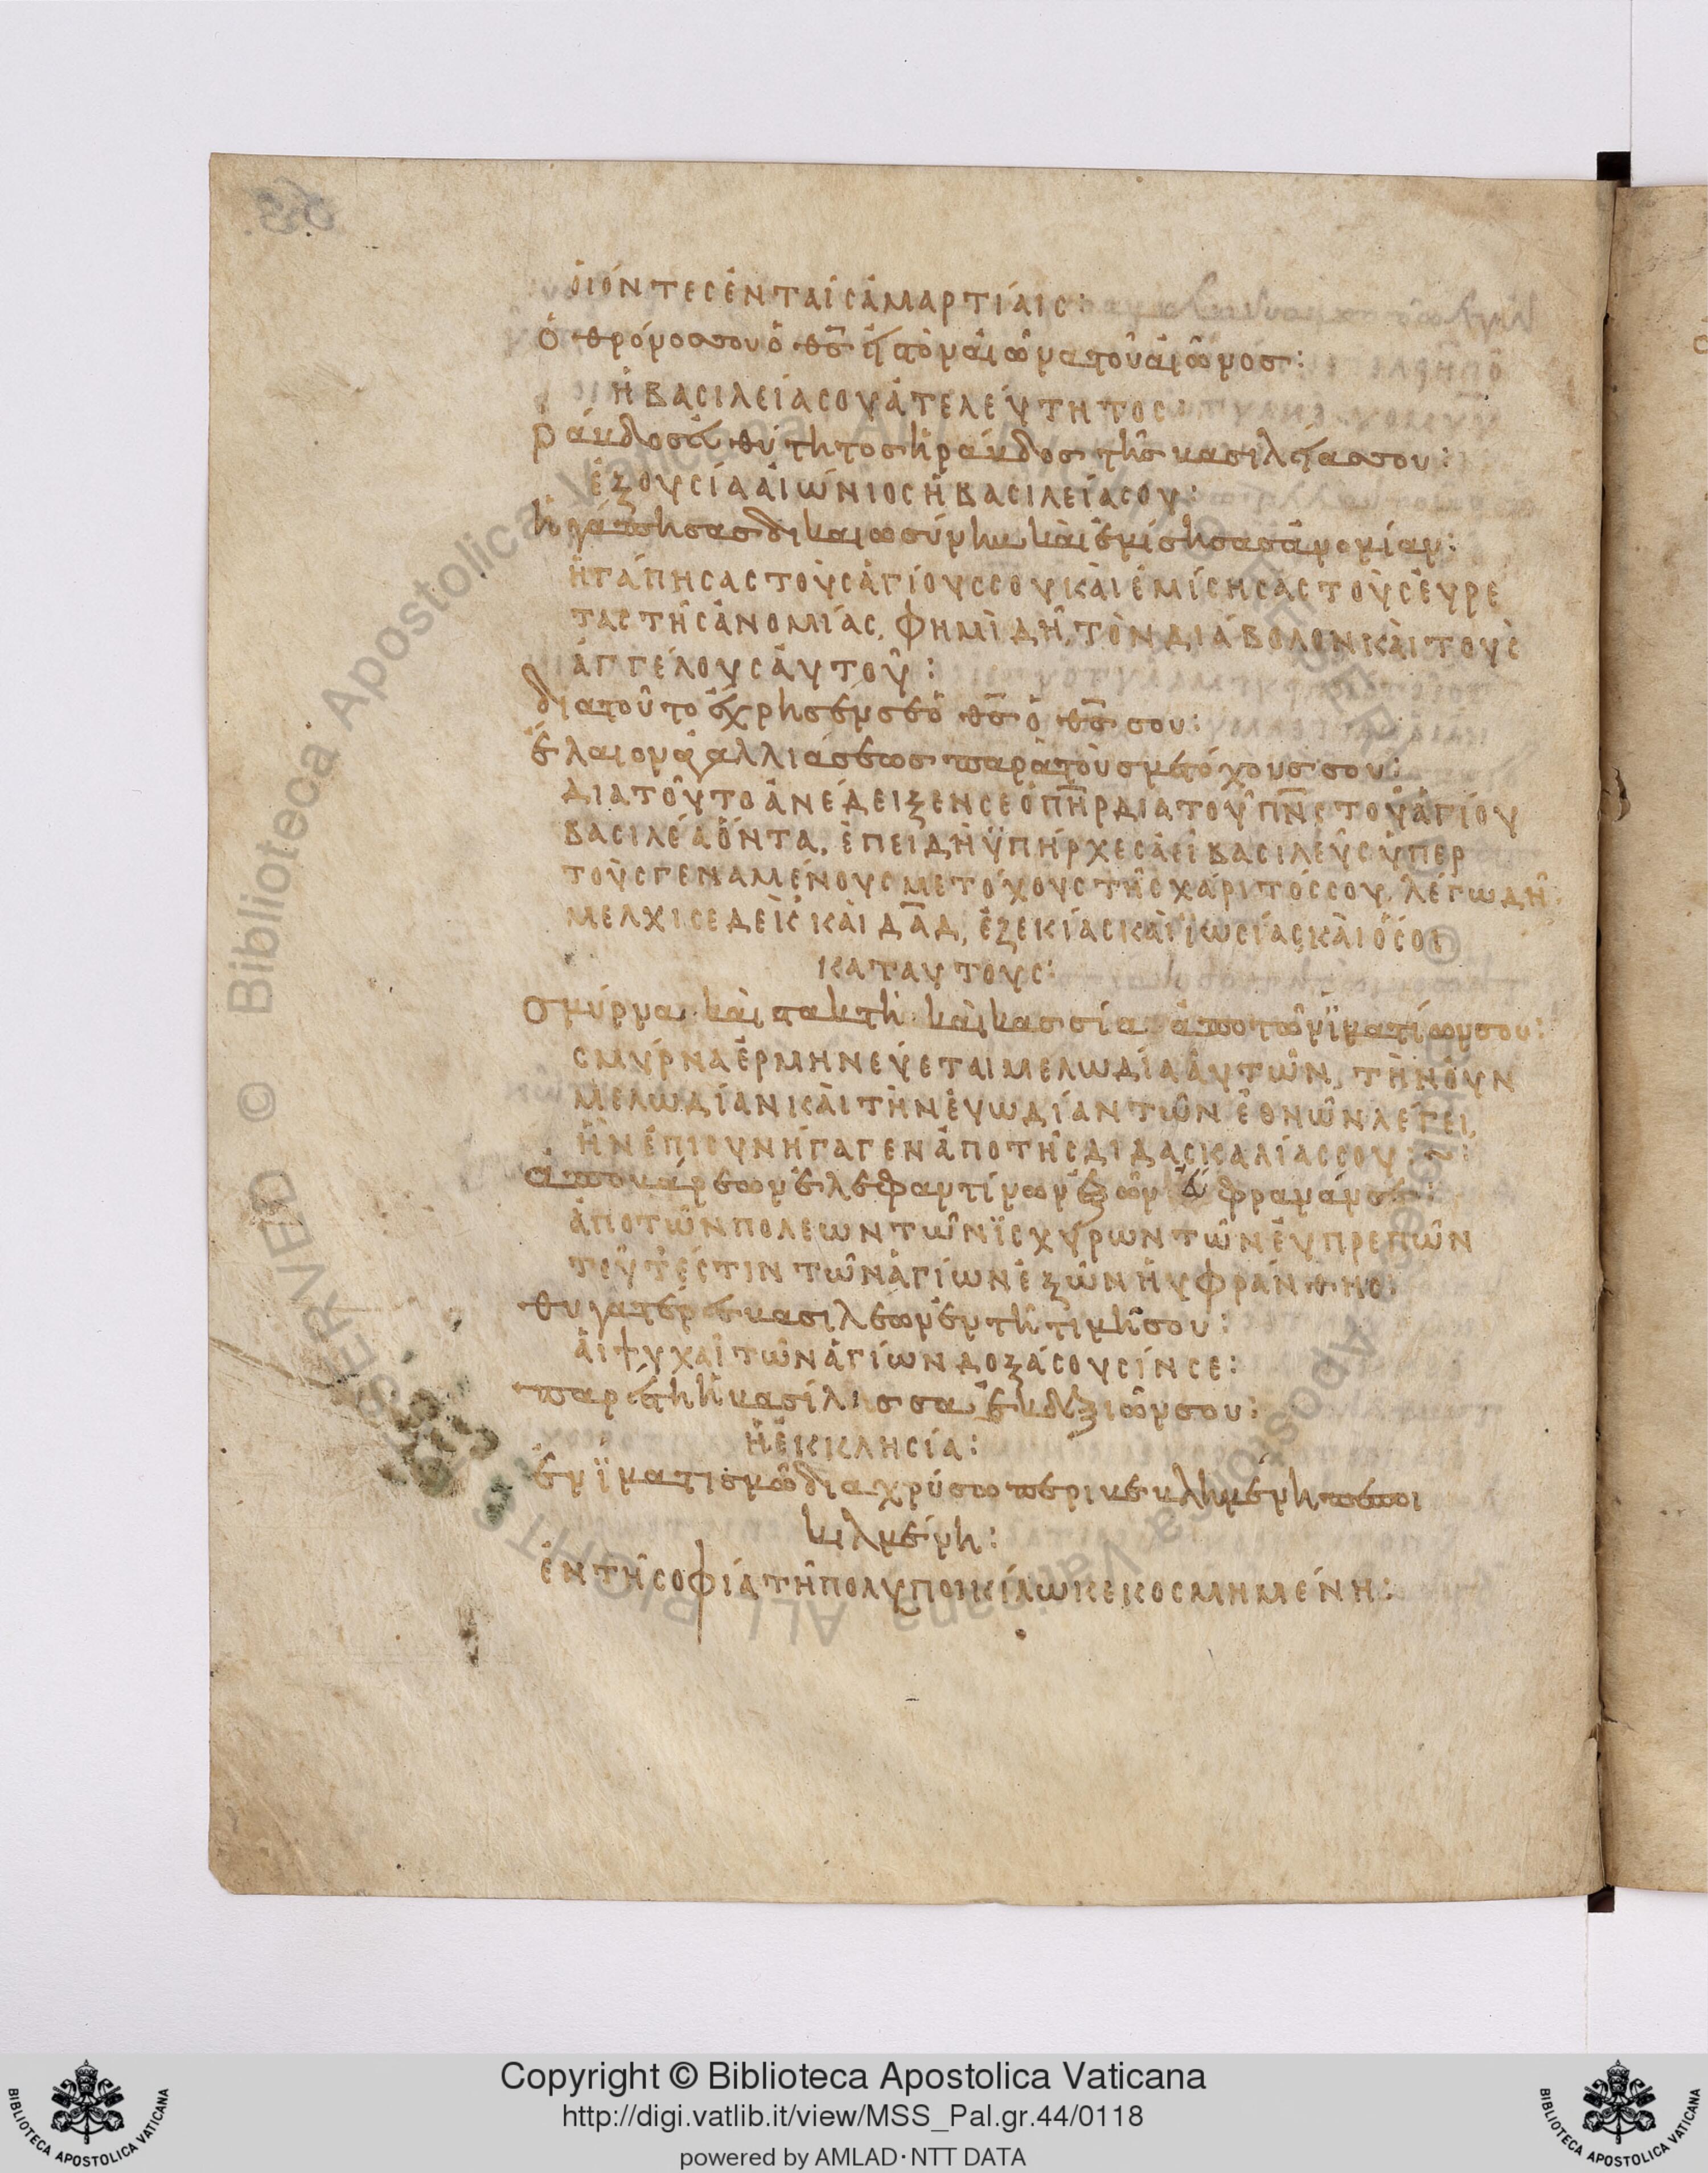 ὁι ὄντες ἐν ταῖς ἁμαρτίαις:
Ὁ θρόνος σου ὁ θς εἰς τὸν αἰῶνα τοῦ αἰῶνος:
ἡ βασιλεία σου ἀτελεύτητος:
ῥάβδος εὐθύτητος ἡ ῥάβδος τῆς βασιλείας σου:
ἐξουσία αἰώνιος ἡ βασιλεία σου:
ἠγάπησας δικαιωσύνην καὶ ἐμίσησας ἀνομίαν:
ἠγάπησας τοὺς ἁγίους σου καὶ ἐμίσησας τοὺς εὑρε
τας τῆς ἀνομίας, φημὶ δὴ, τὸν διάβολον καὶ τοὺς
ἀγγέλους αὐτοῦ:
διατοῦτο ἔχρησέν σε ὁ θς ὁ θς σου:
ἔλαιον ἀγαλλιάσεως παρὰ τοὺς μετόχους σου:
διατοῦτο ἀνέδειξεν σε ὁ πηρ διατοῦ πνς τοῦ ἁγίου
βασιλέα ὄντα, ἐπειδὴ ὑπῆρχες ἀεὶ βασιλεὺς ὑπερ
τοὺς γεναμένους μετόχους τῆς χάριτός σου, λέγω δὴ
μελχισεδεὶκ καὶ δαδ, ἐζεκίας καὶ ἰωσίας καὶ ὅσοι
καταυτους:
Σμύρνα καὶ στακτὴ καὶ κασσία ἀπο τῶν ἱματίων σου:
σμύρνα ἑρμηνεύεται μελωδία αὐτῶν, τὴν οὖν
μελωδίαν καὶ τὴν εὐωδίαν τῶν ἐθνῶν λέγει,
ἣν ἐπισυνήγαγεν ἀπο τῆς διδασκαλίας σου:
ἀπο βάρεων ἐλεφαντίνων ἐξ ὧν εὔφρανάν σε:
ἀπο τῶν πολεων τῶν ἰσχυρων τῶν εὐπρεπῶν
τουτέστιν τῶν ἁγίων ἐξ ὧν ηὐφράνθης:
θυγατέρες βασιλεων ἐν τῆ τιμῆ σου:
ἁι ψυχαὶ τῶν ἁγίων δοξάσουσίν σε:
παρέστη ἡ βασίλισσα ἐκ δεξιῶν σου:
ἡ ἐκκλησία:
ἐν ἱματισμῶ διαχρύσω περιβεβλημένη πεποι
κιλμένη:
ἐν τῆ σοφία τῆ πολυποικίλω κεκοσμημένη:
Copyright © Biblioteca Apostolica Vaticana
http://digi.vatlib.it/view/MSS_Pal.gr.44/0118
powered by AMLAD·NTT DATA
BIBLIOTECA APOSTOLICA VATICANA
BIBLIOTECA APOSTOLICA VATICANA